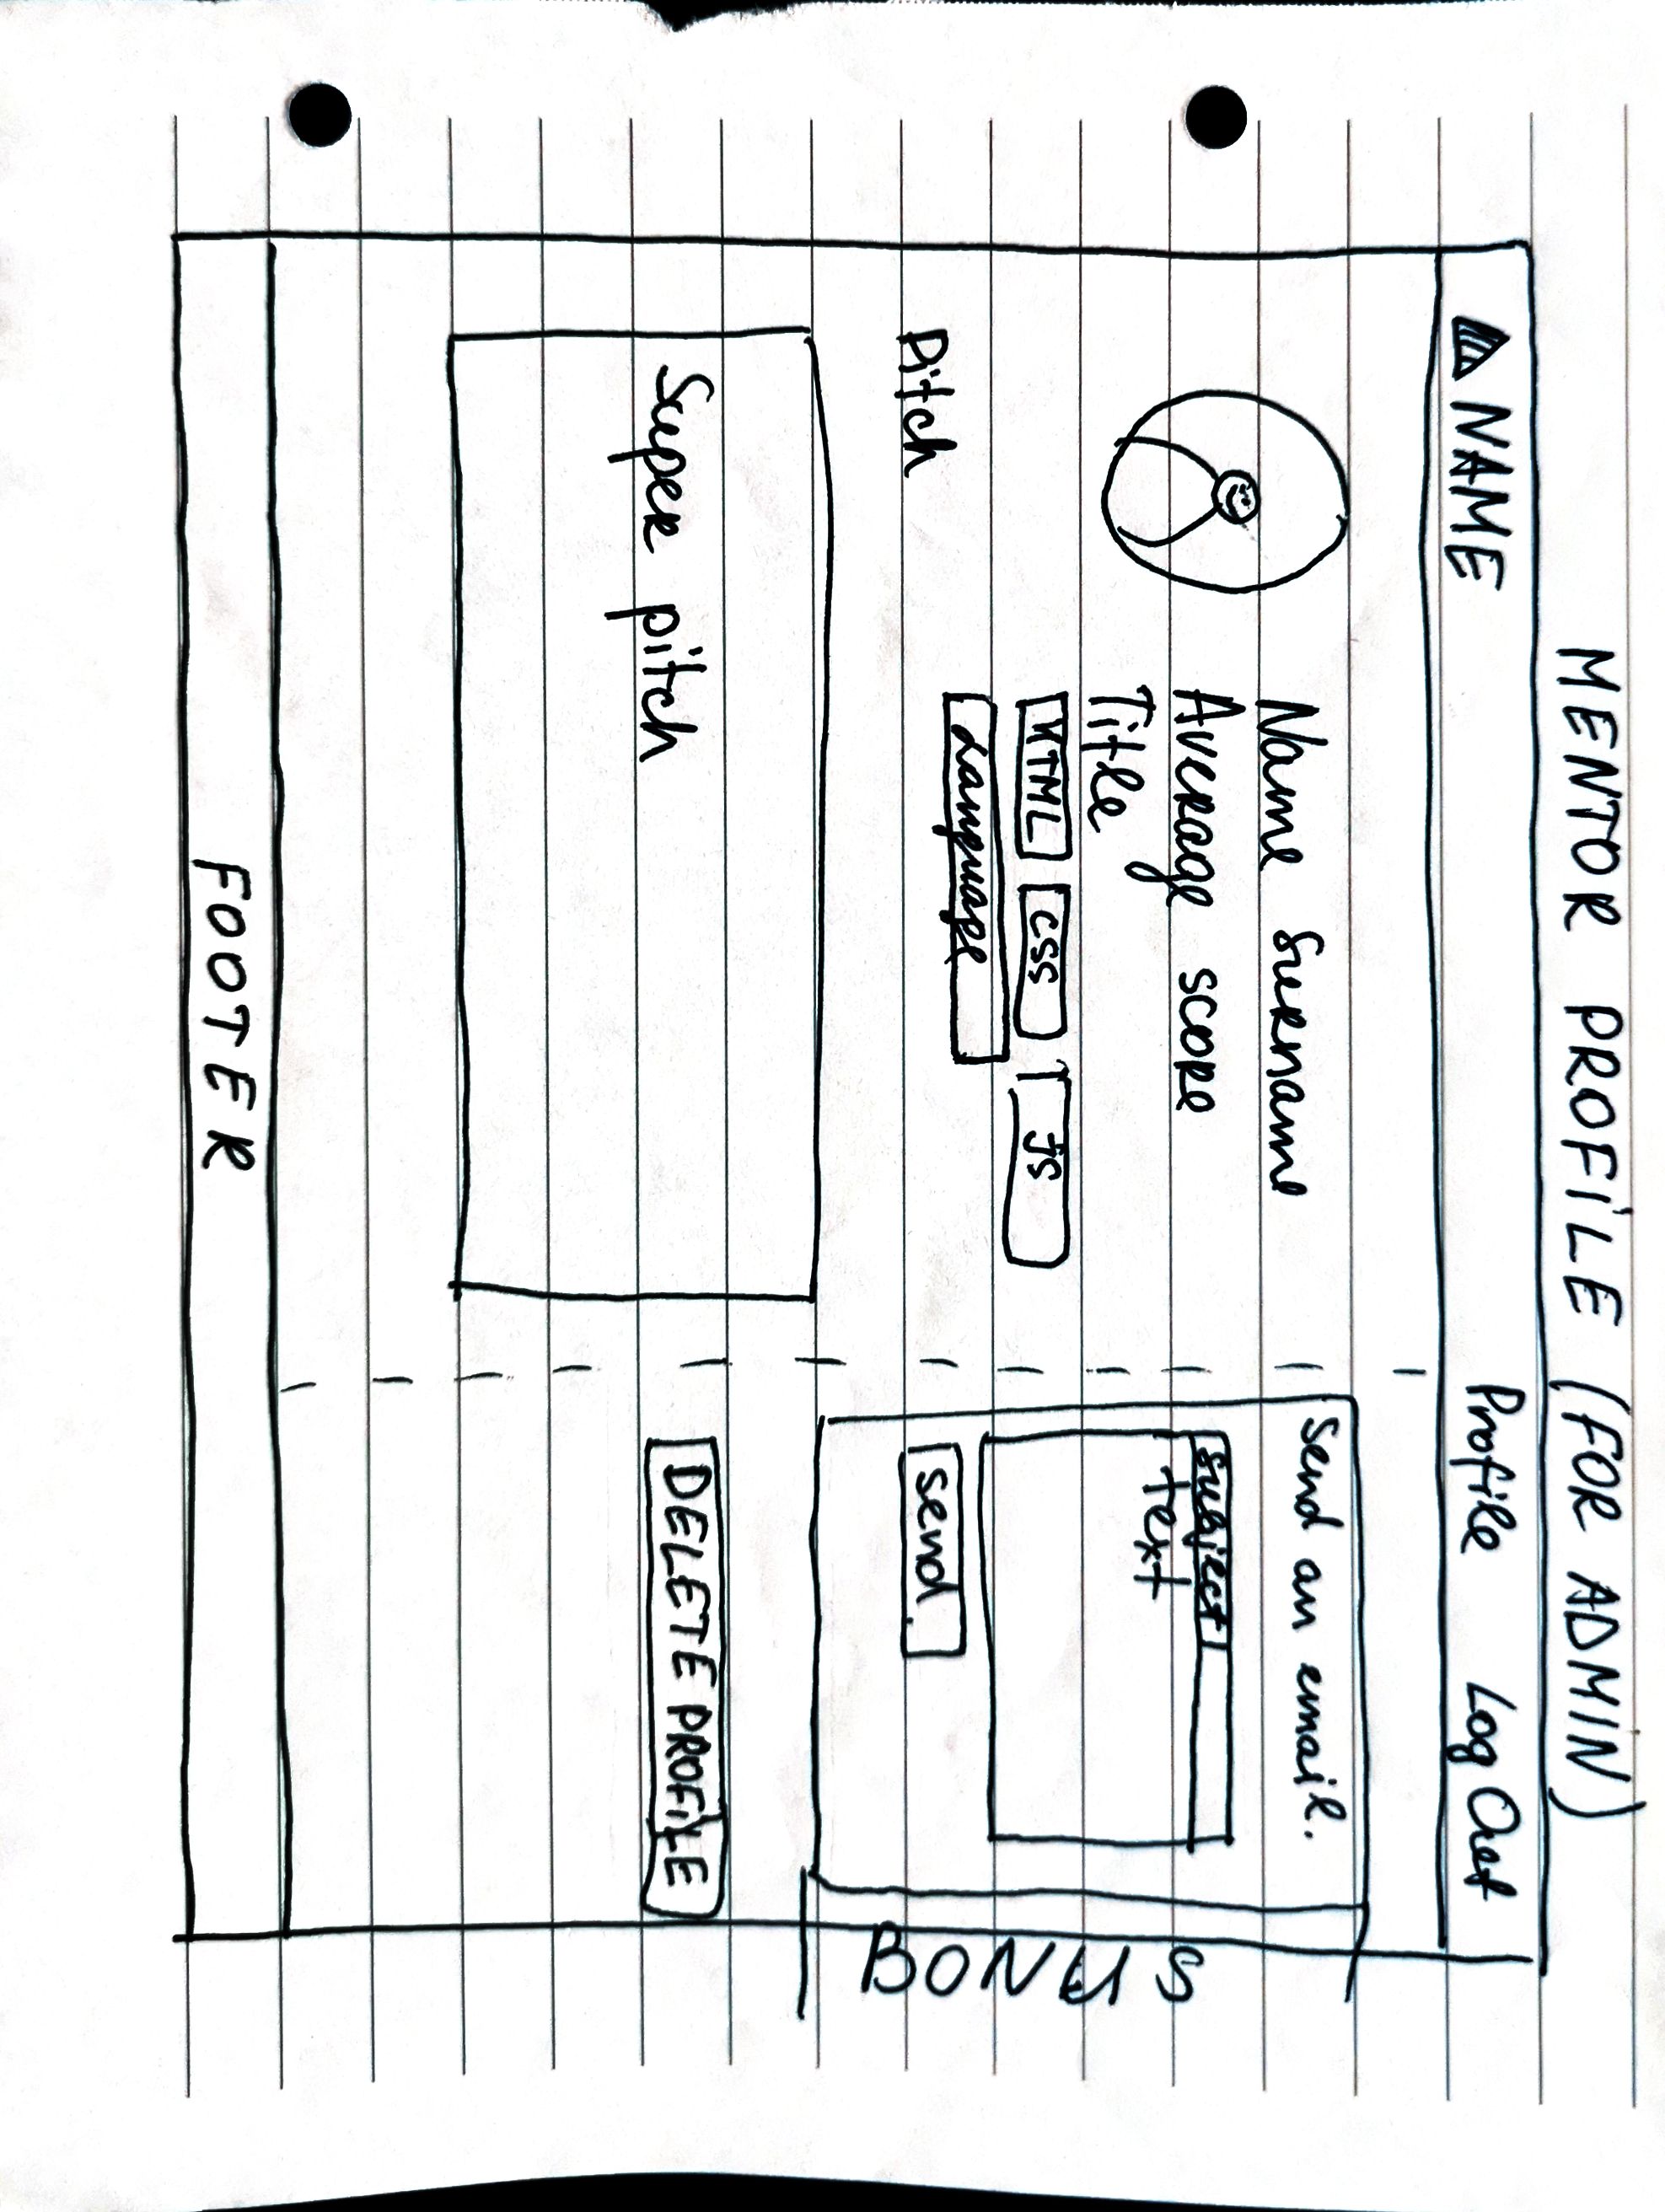 MENTOR PROFILE (FOR ADMIN)
NAME
Profile
Log Out
Name Surname
Average score
Title
HTML
CSS
JS
Language
Pitch
Super pitch
Send an email.
Subject
text
send.
BONUS
DELETE PROFILE
FOOTER